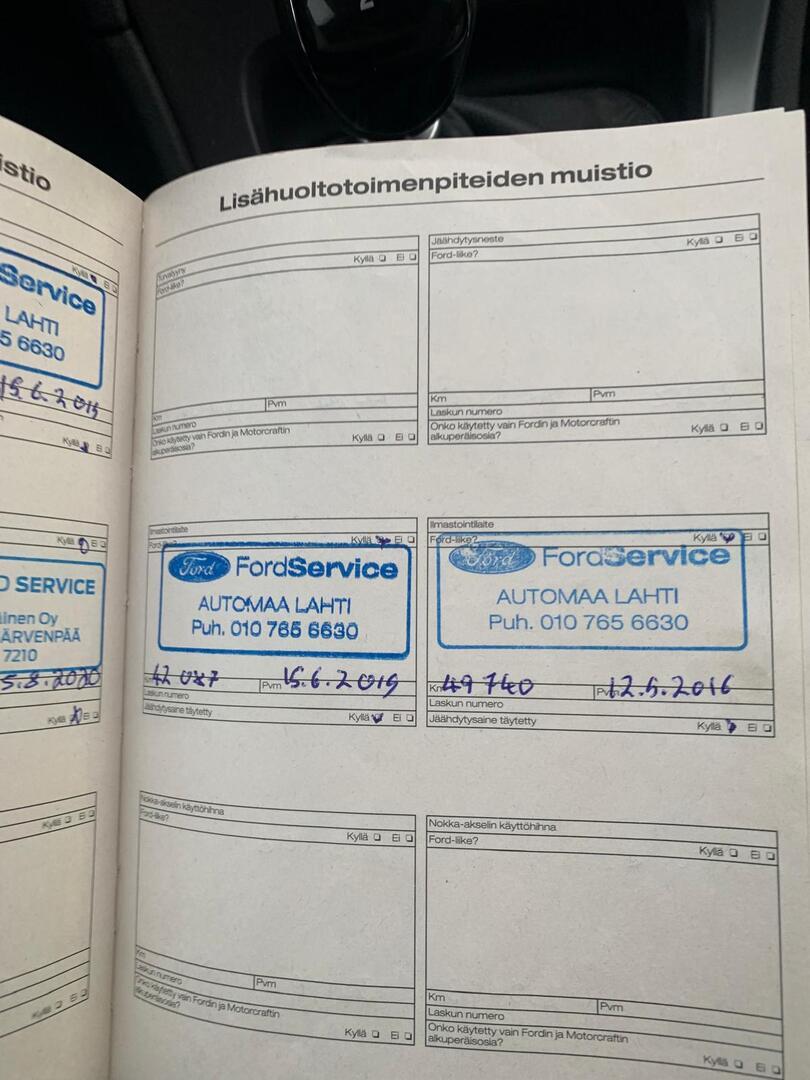 istio
Kyllä Ei
Service
LAHTI
5 6630
15.6.2015
Kyllä Ei
Kyllä Ei
D SERVICE
linen Oy
ÄRVENPÄÄ
7210
5.8.2020
Kyllä Ei
Kyllä Ei
Kyllä Ei
Lisähuoltotoimenpiteiden muistio
Turvatyyny
Ford-liike?
Kyllä Ei
Km Pvm
Laskun numero
Onko käytetty vain Fordin ja Motorcraftin
alkuperäisosia?
Kyllä Ei
Jäähdytysneste
Ford-liike?
Kyllä Ei
Km Pvm
Laskun numero
Onko käytetty vain Fordin ja Motorcraftin
alkuperäisosia?
Kyllä Ei
Ilmastointilaite
Ford-liike? Kyllä Ei
Ford FordService
AUTOMAA LAHTI
Puh. 010 765 6630
Km Pvm 15.6.2015
Laskun numero
Jäähdytysaine täytetty
Kyllä Ei
Ilmastointilaite
Ford-liike? Kyllä Ei
Ford FordService
AUTOMAA LAHTI
Puh. 010 765 6630
Km 49 740 Pvm 12.5.2016
Laskun numero
Jäähdytysaine täytetty
Kyllä Ei
Nokka-akselin käyttöhihna
Ford-liike?
Kyllä Ei
Km
Laskun numero Pvm
Onko käytetty vain Fordin ja Motorcraftin
alkuperäisosia?
Kyllä Ei
Nokka-akselin käyttöhihna
Ford-liike?
Kyllä Ei
Km Pvm
Laskun numero
Onko käytetty vain Fordin ja Motorcraftin
alkuperäisosia?
Kyllä Ei